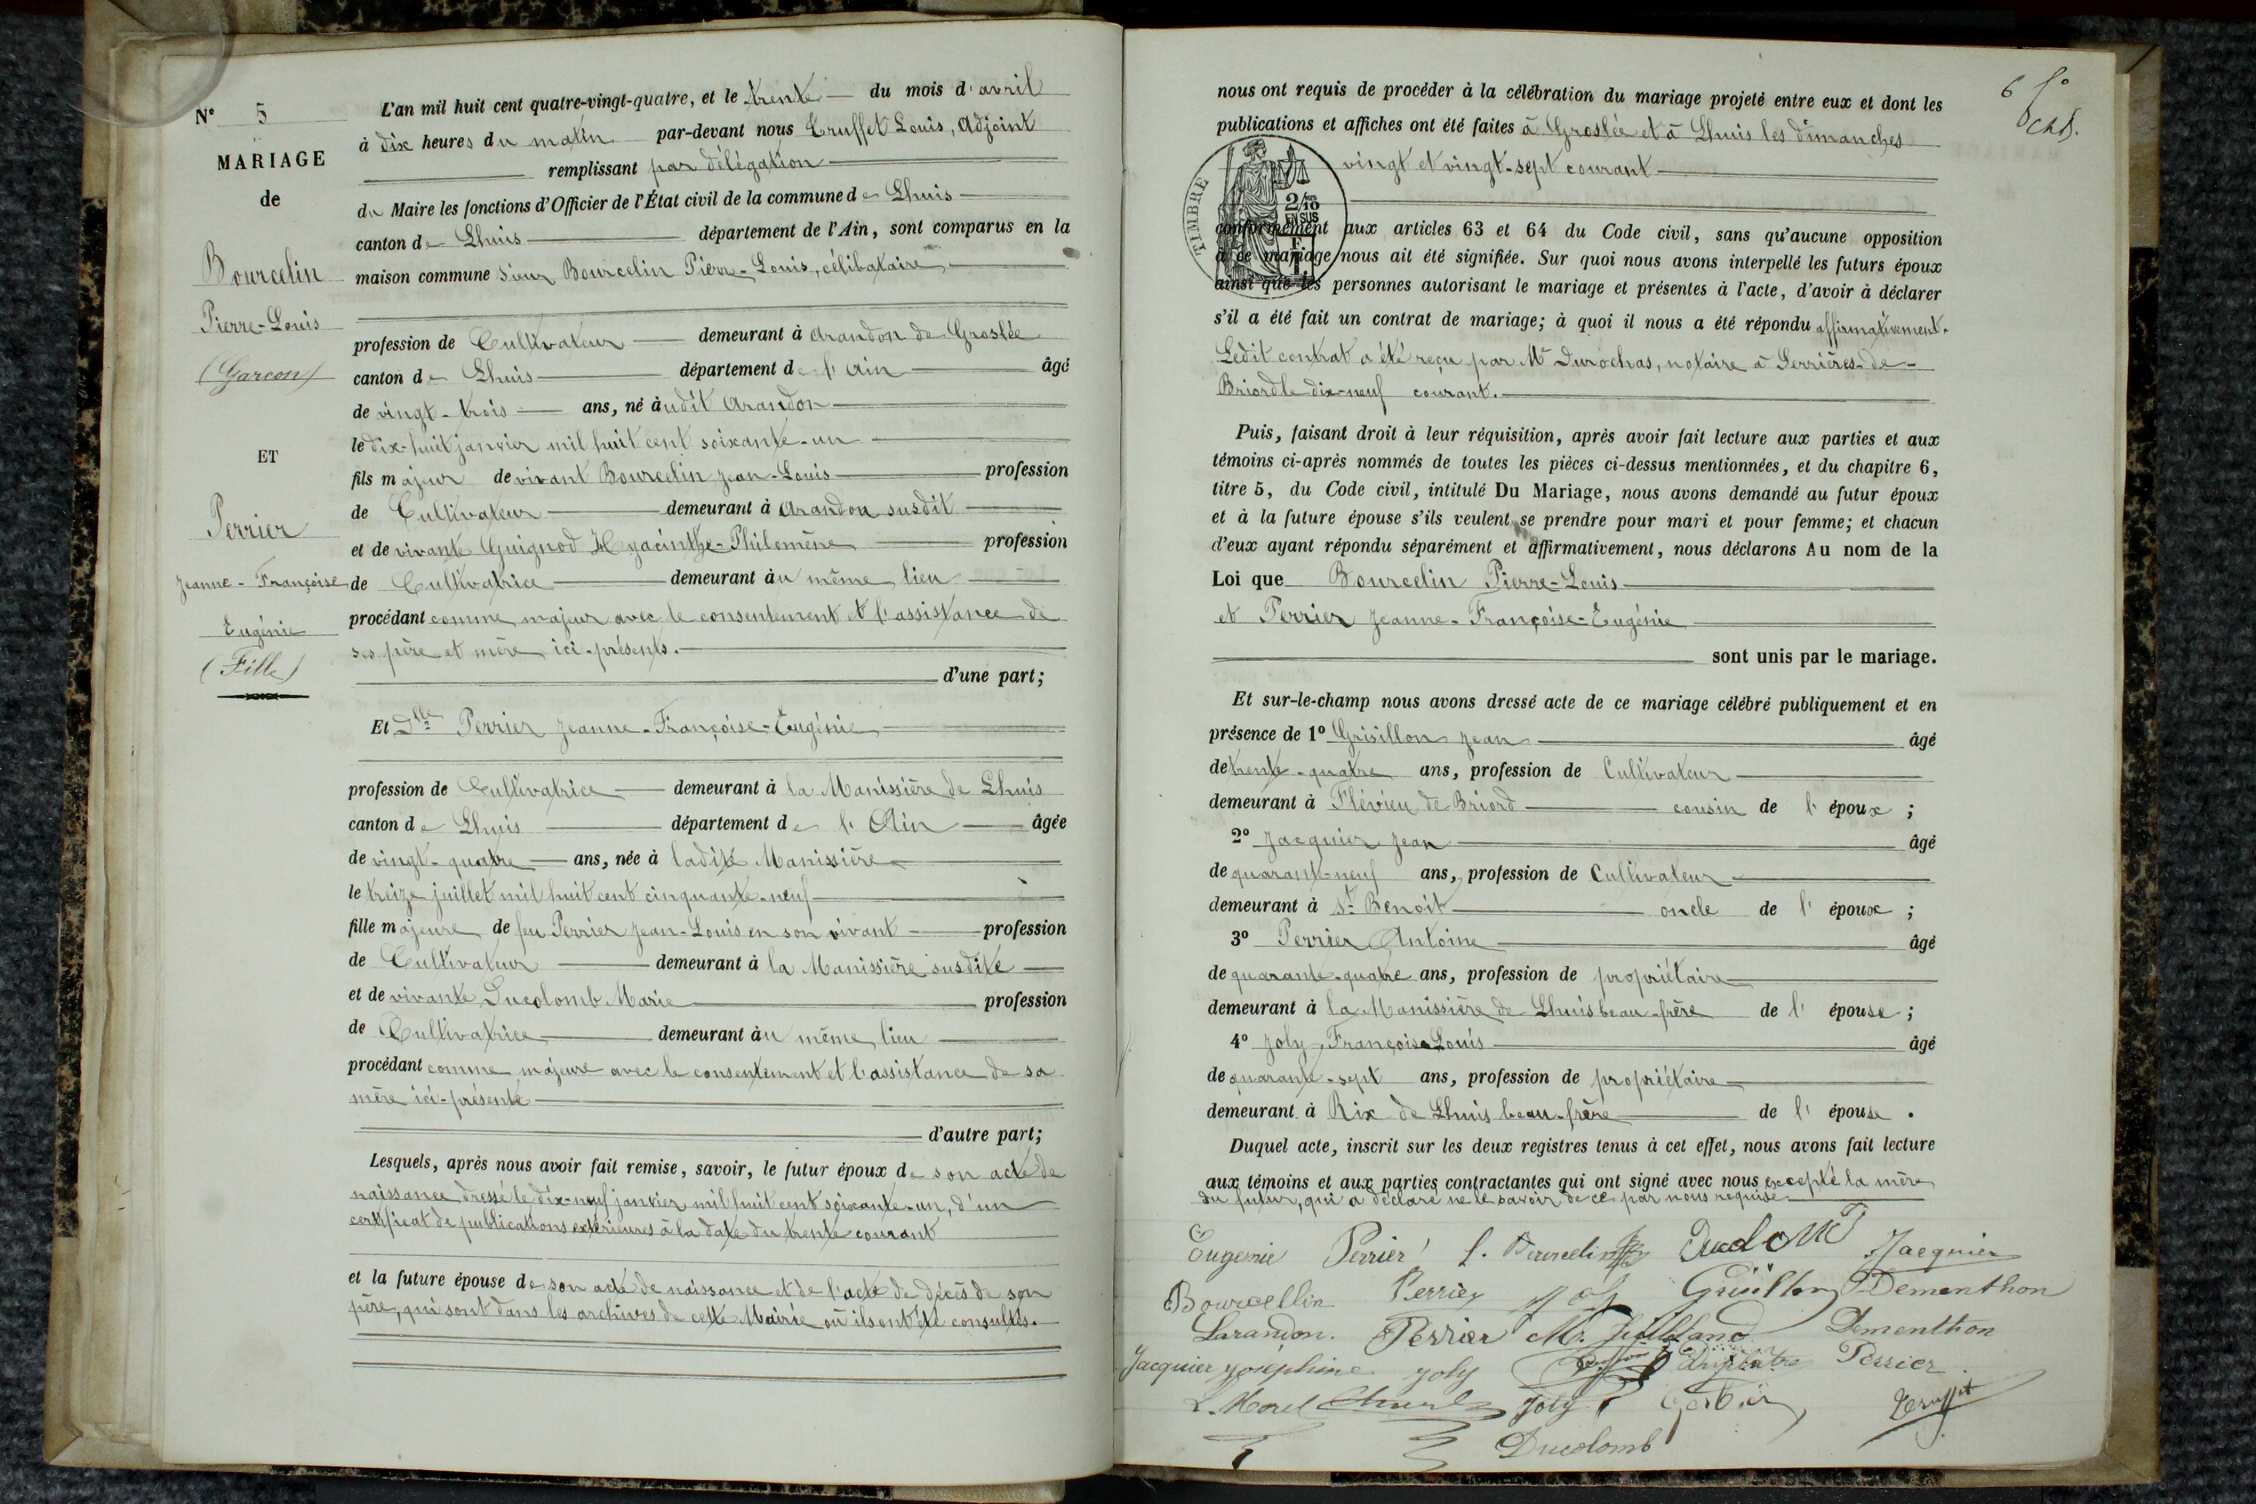 N° 5
MARIAGE
de
Bourcelin
Pierre-Louis
(Garcon)
ET
Perrier
Jeanne-Françoise
Eugénie
(Fille)
L'an mil huit cent quatre-vingt-quatre, et le trente du mois d'avril
à dix heures du matin par-devant nous Truffet Louis, Adjoint
remplissant par délégation
du Maire les fonctions d'Officier de l'État civil de la commune de Lhuis
canton de Lhuis département de l'Ain, sont comparus en la
maison commune sieur Bourcelin Pierre-Louis, célibataire,
profession de Cultivateur demeurant à Arandon de Groslée
canton de Lhuis département de l'Ain âgé
de vingt-trois ans, né àudit Arandon
le dix-huit janvier mil huit cent soixante-un
fils majeur de vivant Bourcelin Jean-Louis profession
de Cultivateur demeurant à Arandon susdit
et de vivante Guignod Hyacinthe-Philomène profession
de Cultivatrice demeurant àu même lieu
procédant comme majeur avec le consentement et l'assistance de
ses père et mère ici-présents.
d'une part;
Et Dlle Perrier Jeanne-Françoise-Eugénie
profession de Cultivatrice demeurant à la Manissière de Lhuis
canton de Lhuis département de l'Ain âgée
de vingt-quatre ans, née à ladite Manissière
le treize juillet mil huit cent cinquante-neuf
fille majeure de feu Perrier Jean-Louis en son vivant profession
de Cultivateur demeurant à la Manissière susdite
et de vivante Ducolomb Marie profession
de Cultivatrice demeurant àu même lieu
procédant comme majeure avec le consentement et l'assistance de sa
mère ici-présente
d'autre part;
Lesquels, après nous avoir fait remise, savoir, le futur époux de son acte de
naissance dressé le dix-neuf janvier mil huit cent soixante-un, d'un
certificat de publications extérieures à la date du trente courant
et la future épouse de son acte de naissance et de l'acte de décès de son
père, qui sont dans les archives de cette Mairie où ils ont été consultés.
6
nous ont requis de procéder à la célébration du mariage projeté entre eux et dont les
publications et affiches ont été faites à Groslée et à Lhuis les dimanches
vingt et vingt-sept courant
TIMBRE
2/10
EN SUS
conformément aux articles 63 et 64 du Code civil, sans qu'aucune opposition
à ce mariage nous ait été signifiée. Sur quoi nous avons interpellé les futurs époux
ainsi que les personnes autorisant le mariage et présentes à l'acte, d'avoir à déclarer
s'il a été fait un contrat de mariage; à quoi il nous a été répondu affirmativement.
Ledit contrat a été reçu par Me Durochas, notaire à Serrières-de-
Briord le dix-neuf courant.
Puis, faisant droit à leur réquisition, après avoir fait lecture aux parties et aux
témoins ci-après nommés de toutes les pièces ci-dessus mentionnées, et du chapitre 6,
titre 5, du Code civil, intitulé Du Mariage, nous avons demandé au futur époux
et à la future épouse s'ils veulent se prendre pour mari et pour femme; et chacun
d'eux ayant répondu séparément et affirmativement, nous déclarons Au nom de la
Loi que Bourcelin Pierre-Louis
et Perrier Jeanne-Françoise-Eugénie
sont unis par le mariage.
Et sur-le-champ nous avons dressé acte de ce mariage célébré publiquement et en
présence de 1° Grisillon Jean âgé
de trente-quatre ans, profession de Cultivateur
demeurant à Flévieu de Briord cousin de l'époux ;
2° Jacquier Jean âgé
de quarante-neuf ans, profession de Cultivateur
demeurant à St Benoit oncle de l'époux ;
3° Perrier Antoine âgé
de quarante-quatre ans, profession de propriétaire
demeurant à la Manissière de Lhuis beau-frère de l'épouse ;
4° Joly François-Louis âgé
de quarante-sept ans, profession de propriétaire
demeurant à Rix de Lhuis beau-frère de l'épouse .
Duquel acte, inscrit sur les deux registres tenus à cet effet, nous avons fait lecture
aux témoins et aux parties contractantes qui ont signé avec nous excepté la mère
du futur, qui a déclaré ne le savoir de ce par nous requise.
Eugenie Perrier L. Bourcelin Jacquier
Bourcellin Perrier Grisillon Dementhon
Larandon. Perrier M. Dementhon
Jacquier Joséphine Joly Perrier
L. Morel Joly Truffet
Ducolomb